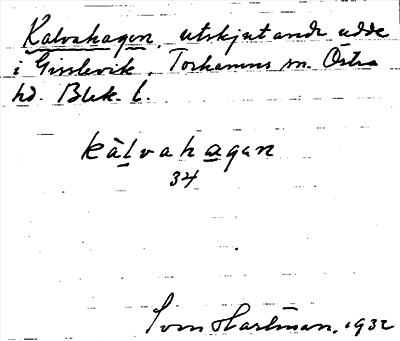 Kalvahagen, utskjutande udde
i Gisslevik, Torhamns sn. Östra
hd. Blek. l.
kàlvahagan
34
Sven Hartman, 1932